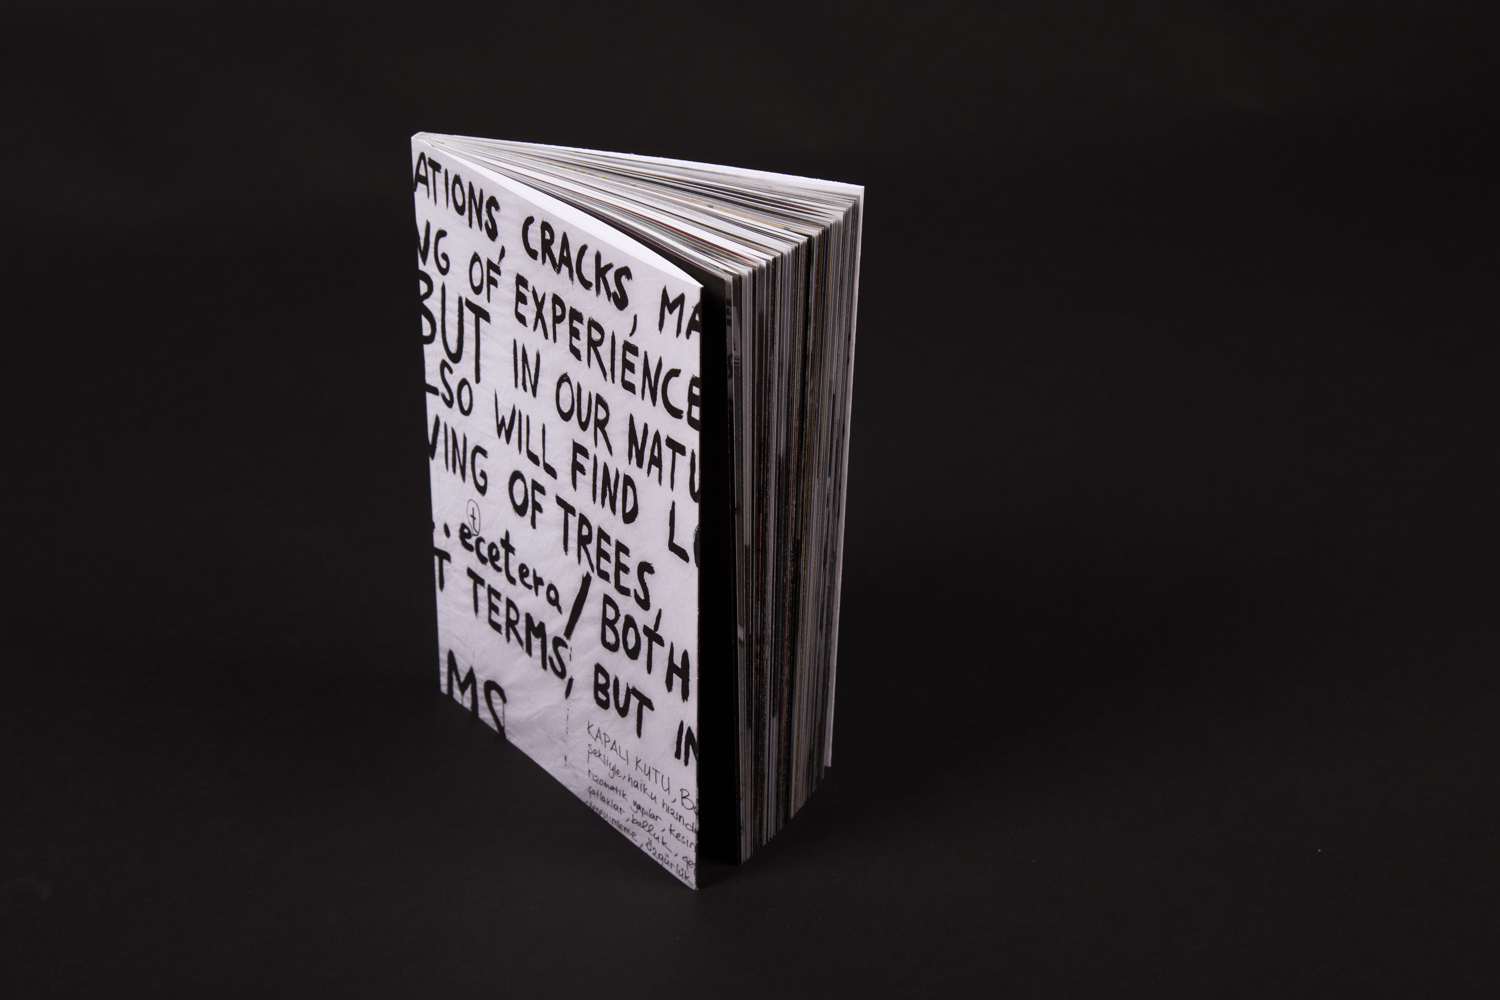 ATIONS, CRACKS, MA
NG OF EXPERIENCE
BUT IN OUR NATU
LSO WILL FIND L
VING OF TREES,
..ecetera / BOTH
t
T TERMS, BUT IN
MS
KAPALI KUTU, B
şekliyle, haiku hızında
rizomatik yapılar, kesin
çatlaklar, bolluk,
deneyimleme, özgürlük